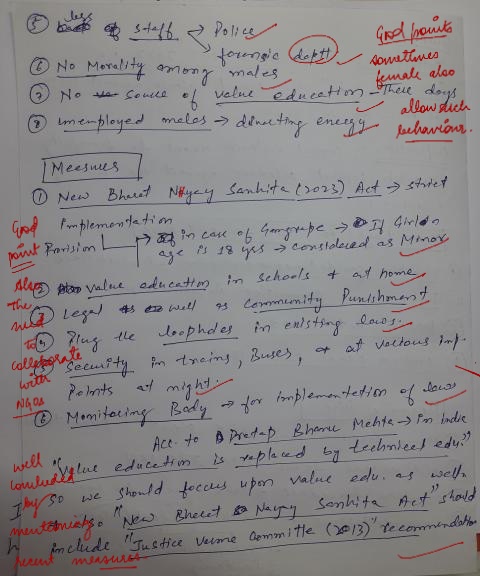 ⑤ less staff → Police
→ forensic deptt
⑥ No Morality among males
⑦ No source of value education - These days
⑧ unemployed males → diverting energy
Good points
sometimes
female also
allow such
behaviour.
Measures
① New Bharat Nyay Sanhita (2023) Act → strict
Implementation
Provision → in case of Gangrape → If Girl
age is 18 yrs → considered as Minor
② value education in schools & at home
③ Legal as well as community Punishment
④ Plug the loopholes in existing laws.
⑤ Security in trains, Buses, & at various imp.
Points at night.
⑥ Monitoring Body → for implementation of laws
Good
point
Also
The
need
to
collaborate
with
NGOs
Acc. to Pratap Bhanu Mehta → in India
"Value education is replaced by technical edu."
so we should focus upon value edu. as well
so "New Bharat Nyay Sanhita Act" should
include "Justice Verma Committe (2013)" recommendation
well
concluded
by
mentioning
recent measures